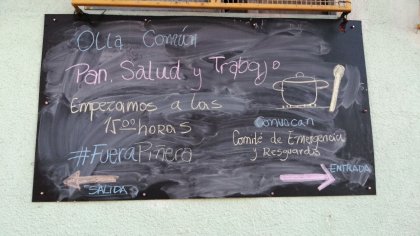 Olla Común
Pan, Salud y Trabajo
Empezamos a las
15:00 horas
#FueraPiñera
Convocan
Comité de Emergencia
y Resguardo
SALIDA
ENTRADA